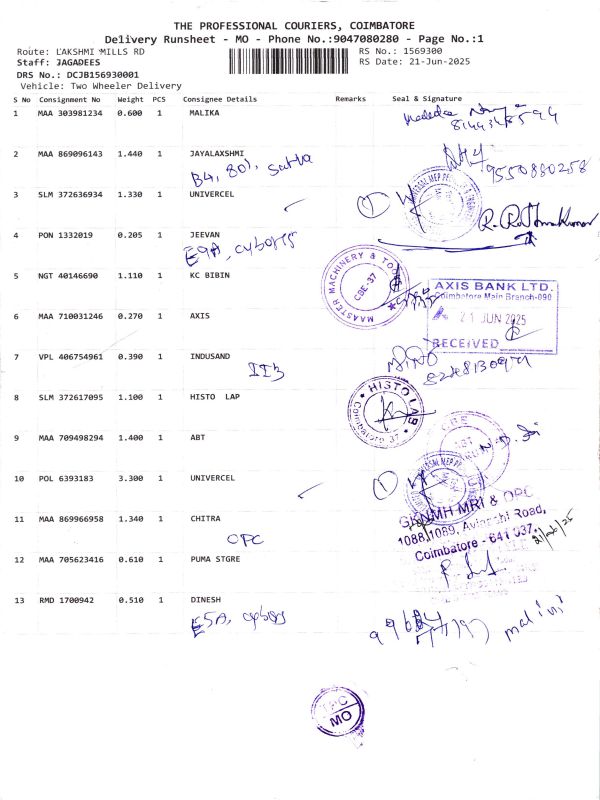 THE PROFESSIONAL COURIERS, COIMBATORE
Delivery Runsheet - MO - Phone No.:9047080280 - Page No.:1
Route: LAKSHMI MILLS RD
RS No.: 1569300
Staff: JAGADEES
RS Date: 21-Jun-2025
DRS No.: DCJB156930001
Vehicle: Two Wheeler Delivery
S No Consignment No Weight PCS Consignee Details Remarks Seal & Signature
1 MAA 303981234 0.600 1 MALIKA
2 MAA 869096143 1.440 1 JAYALAXSHMI
B4, 801,
9550880258
3 SLM 372636934 1.330 1 UNIVERCEL
4 PON 1332019 0.205 1 JEEVAN
E9A, cyber
5 NGT 40146690 1.110 1 KC BIBIN
MAASTER MACHINERY & TOOLS
CBE-37
AXIS BANK LTD.
Coimbatore Main Branch-090
21 JUN 2025
RECEIVED
6 MAA 710031246 0.270 1 AXIS
7 VPL 406754961 0.390 1 INDUSAND
8 SLM 372617095 1.100 1 HISTO LAP
HISTO LAB
Coimbatore 37
9 MAA 709498294 1.400 1 ABT
10 POL 6393183 3.300 1 UNIVERCEL
11 MAA 869966958 1.340 1 CHITRA
OPC
GKNMH MRI & OPC
1088,1089, Avinashi Road,
Coimbatore - 641 037.
21/06/25
12 MAA 705623416 0.610 1 PUMA STGRE
13 RMD 1700942 0.510 1 DINESH
E5A, cyber
malini
TPC
MO